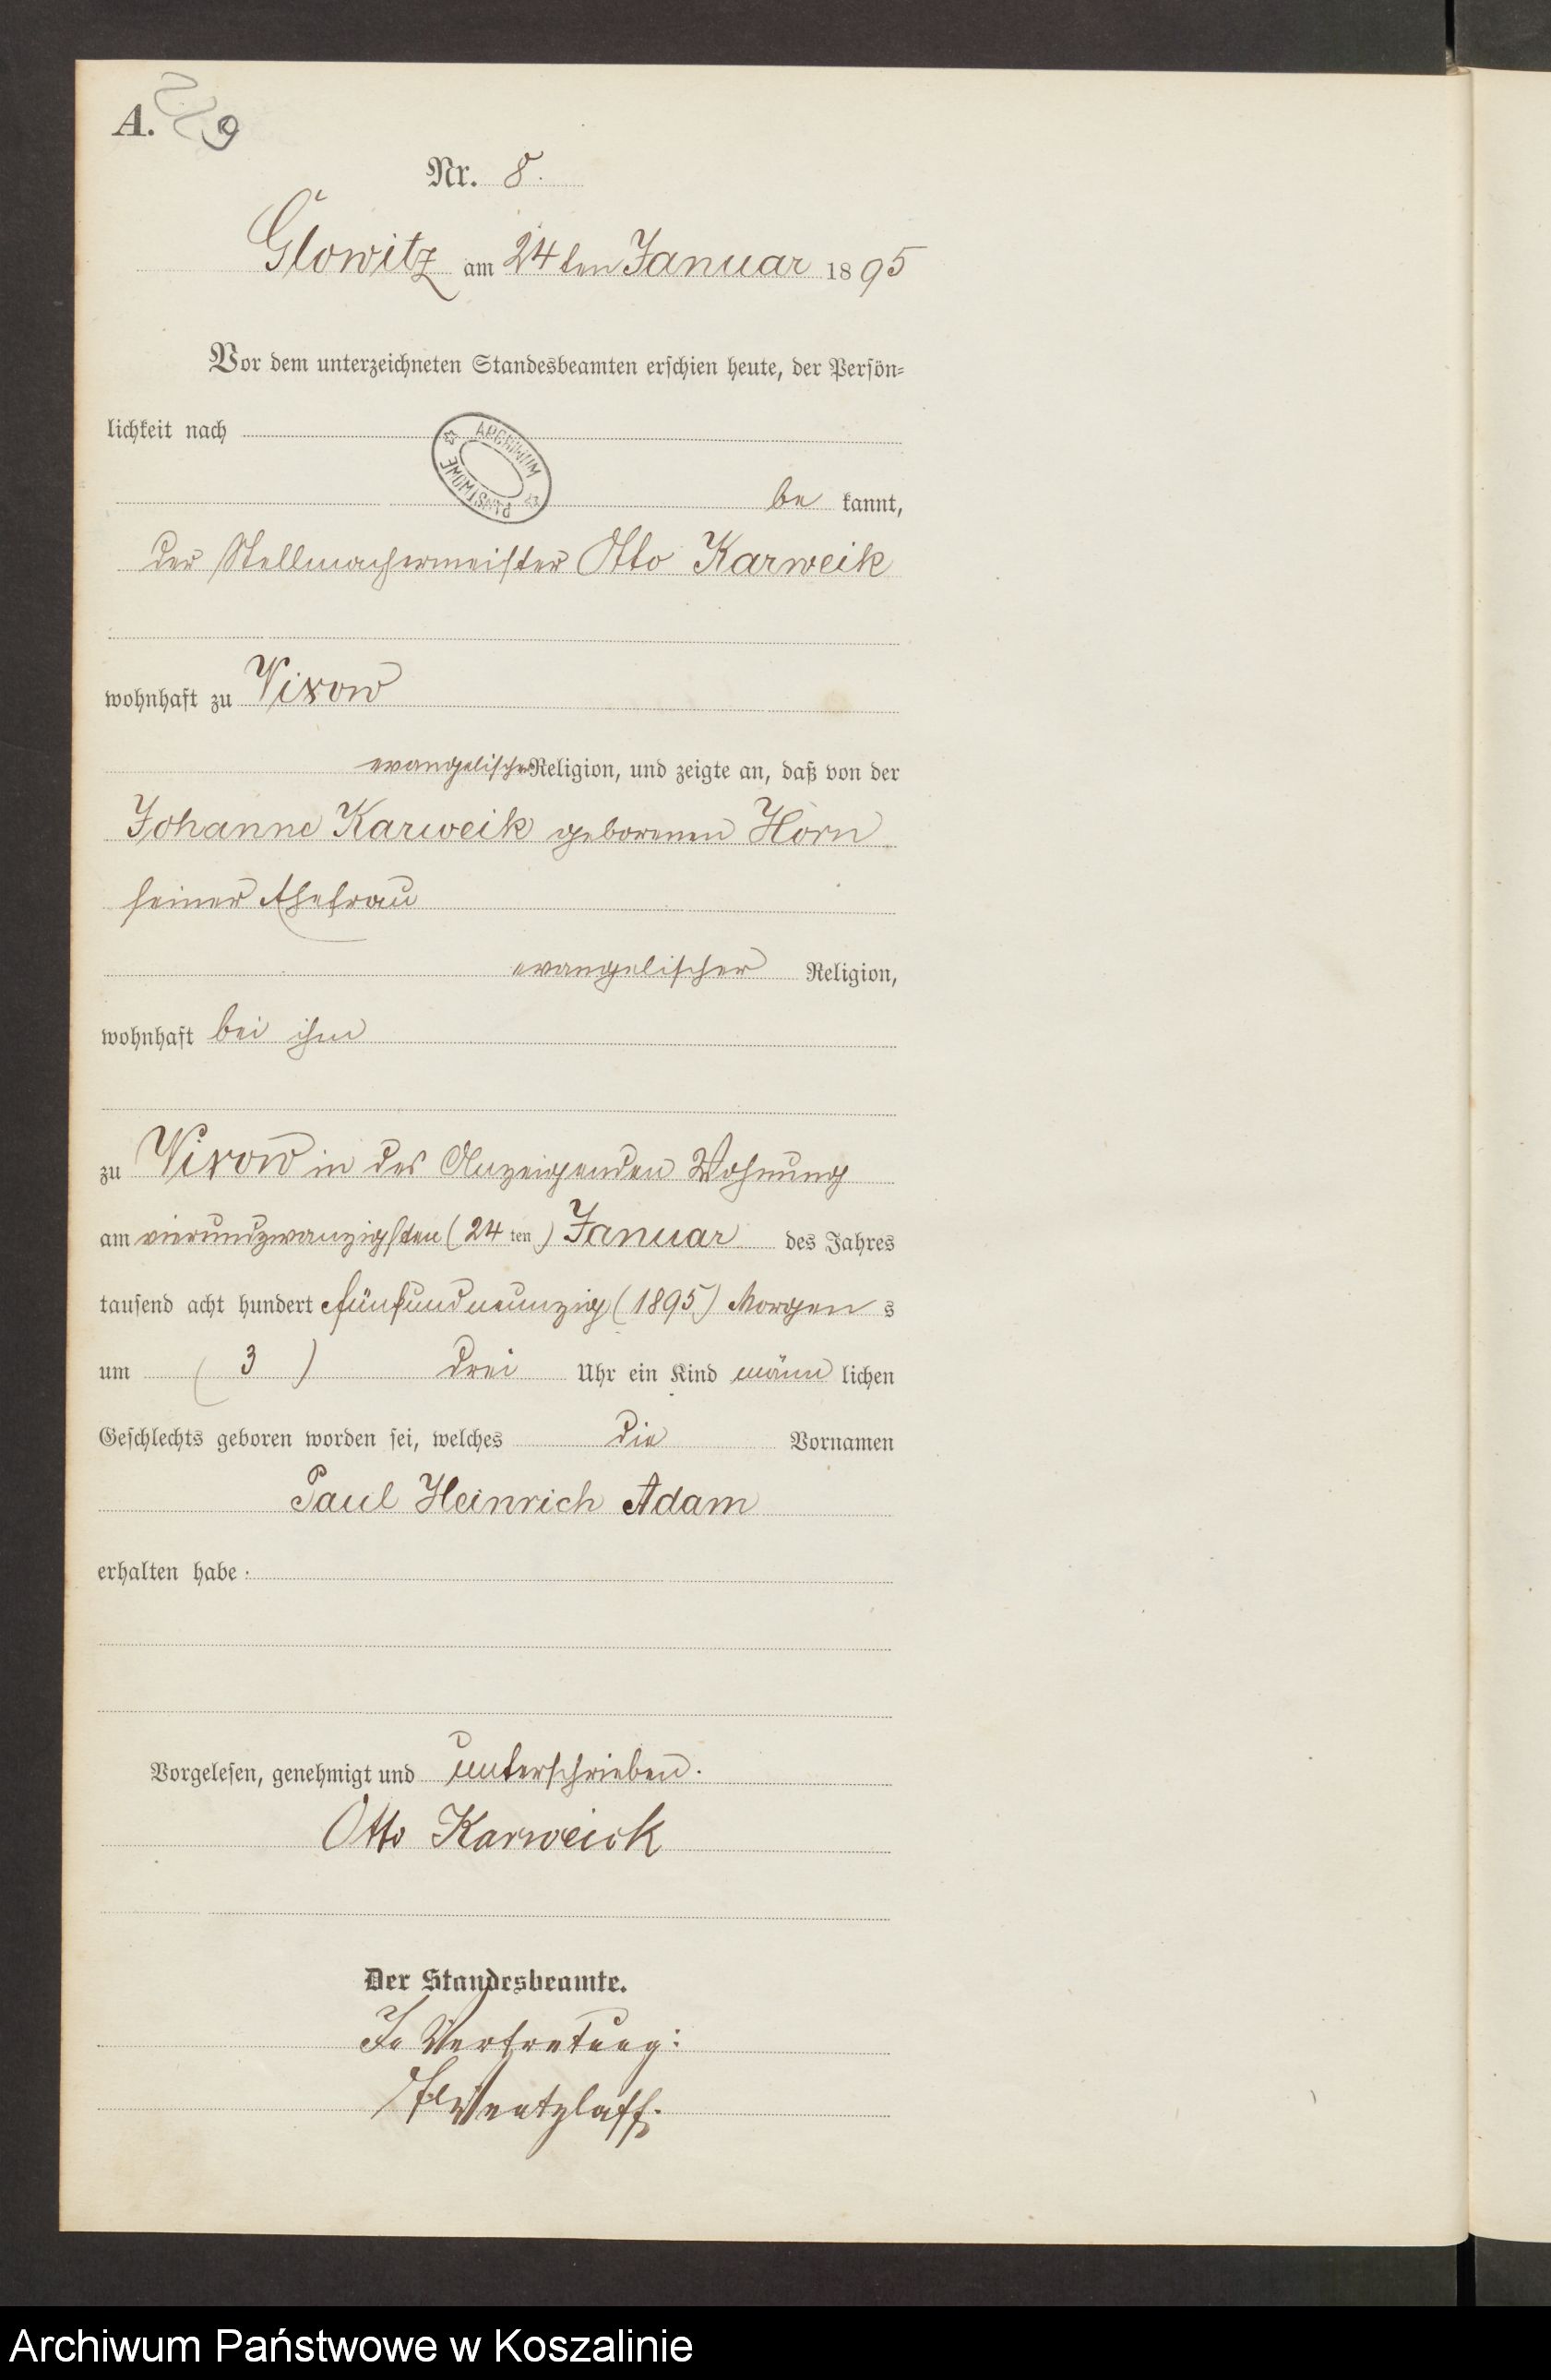 A. 9
Nr. 8.
Glowitz am 24ten Januar 1895
Vor dem unterzeichneten Standesbeamten erschien heute, der Persön-
lichkeit nach
ARCHIWUM PAŃSTWOWE
be kannt,
der Stellmachermeister Otto Karweik
wohnhaft zu Vixow
evangelischer Religion, und zeigte an, daß von der
Johanne Karweik geborenen Horn
seiner Ehefrau
evangelischer Religion,
wohnhaft bei ihm
zu Vixow in des Anzeigenden Wohnung
am vierundzwanzigsten (24 ten) Januar des Jahres
tausend acht hundert fünfundneunzig (1895) Morgen s
um ( 3 ) drei Uhr ein Kind männ lichen
Geschlechts geboren worden sei, welches die Vornamen
Paul Heinrich Adam
erhalten habe.
Vorgelesen, genehmigt und unterschrieben.
Otto Karweick
Der Standesbeamte.
In Vertretung:
Wentzlaff.
Archiwum Państwowe w Koszalinie